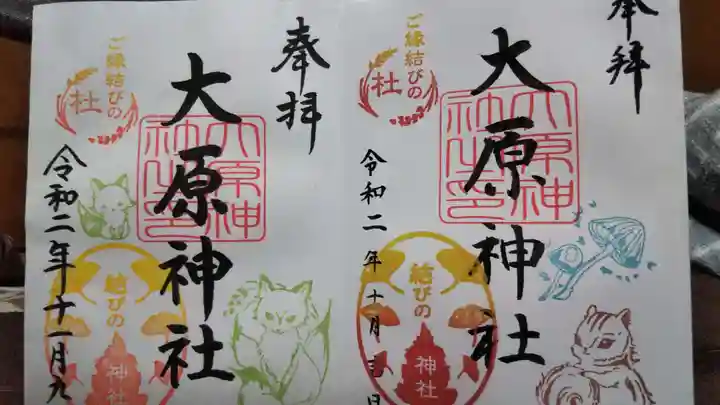 奉拝
ご縁結びの
杜
大原神社
大原神
社之印
令和二年十一月九
結びの
神社
奉拝
ご縁結びの
杜
大原神社
大原神
社之印
令和二年十一月三日
結びの
神社